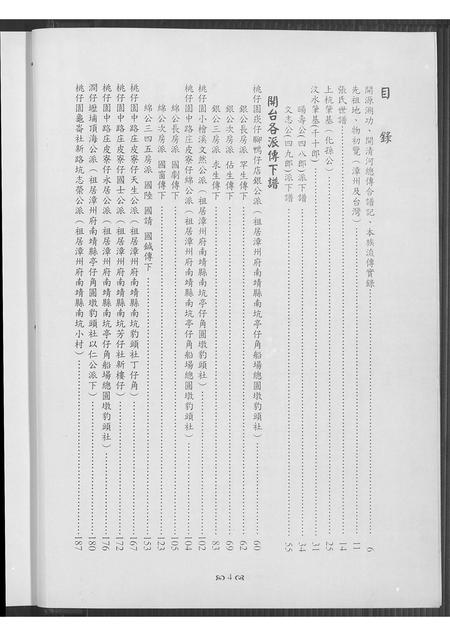 目錄
開源溯功、開清河總傳合譜記、本族追傳實錄……6
先祖地、物初覽(漳州及台灣)……11
張氏世譜……14
上杭肇基(化孫公)……25
汶水肇基(千十郎)……31
錫壽公(四八郎)派下譜……34
文志公(四九郎)派下譜……55
開台各派傳下譜
桃仔園崁仔腳鴨仔店銀公派(祖居漳州府南靖縣南坑亭仔角船場總圓墩豹頭社)……60
銀公長房派 罕生傳下……62
銀公次房派 佑生傳下……69
銀公三房派 永生傳下……83
桃仔園小檜溪文然公派(祖居漳州府南靖縣南坑亭仔角圓墩豹頭社)……102
桃仔園中路庄皮寮仔綿公派(祖居漳州府南靖縣南坑亭仔角船場總圓墩豹頭社)……104
綿公長房派 國劇傳下……105
綿公次房派 國富傳下……123
綿公三四五房派 國陸 國請 國鍼傳下……153
桃仔園中路庄皮寮仔天生公派(祖居漳州府南靖縣南坑豹頭社丁仔角)……167
桃仔園中路庄皮寮仔國士公派(祖居漳州府南靖縣南坑芳仔社新樓仔)……172
桃仔園中路庄皮寮仔永居公派(祖居漳州府南靖縣南坑亭仔角船場總圓墩豹頭社)……176
澗仔壢埔頂海公派(祖居漳州府南靖縣亭仔角圓墩豹頭社以仁公派下)……180
桃仔園龜崙社新路坑志榮公派(祖居漳州府南靖縣南坑小村)……187
4